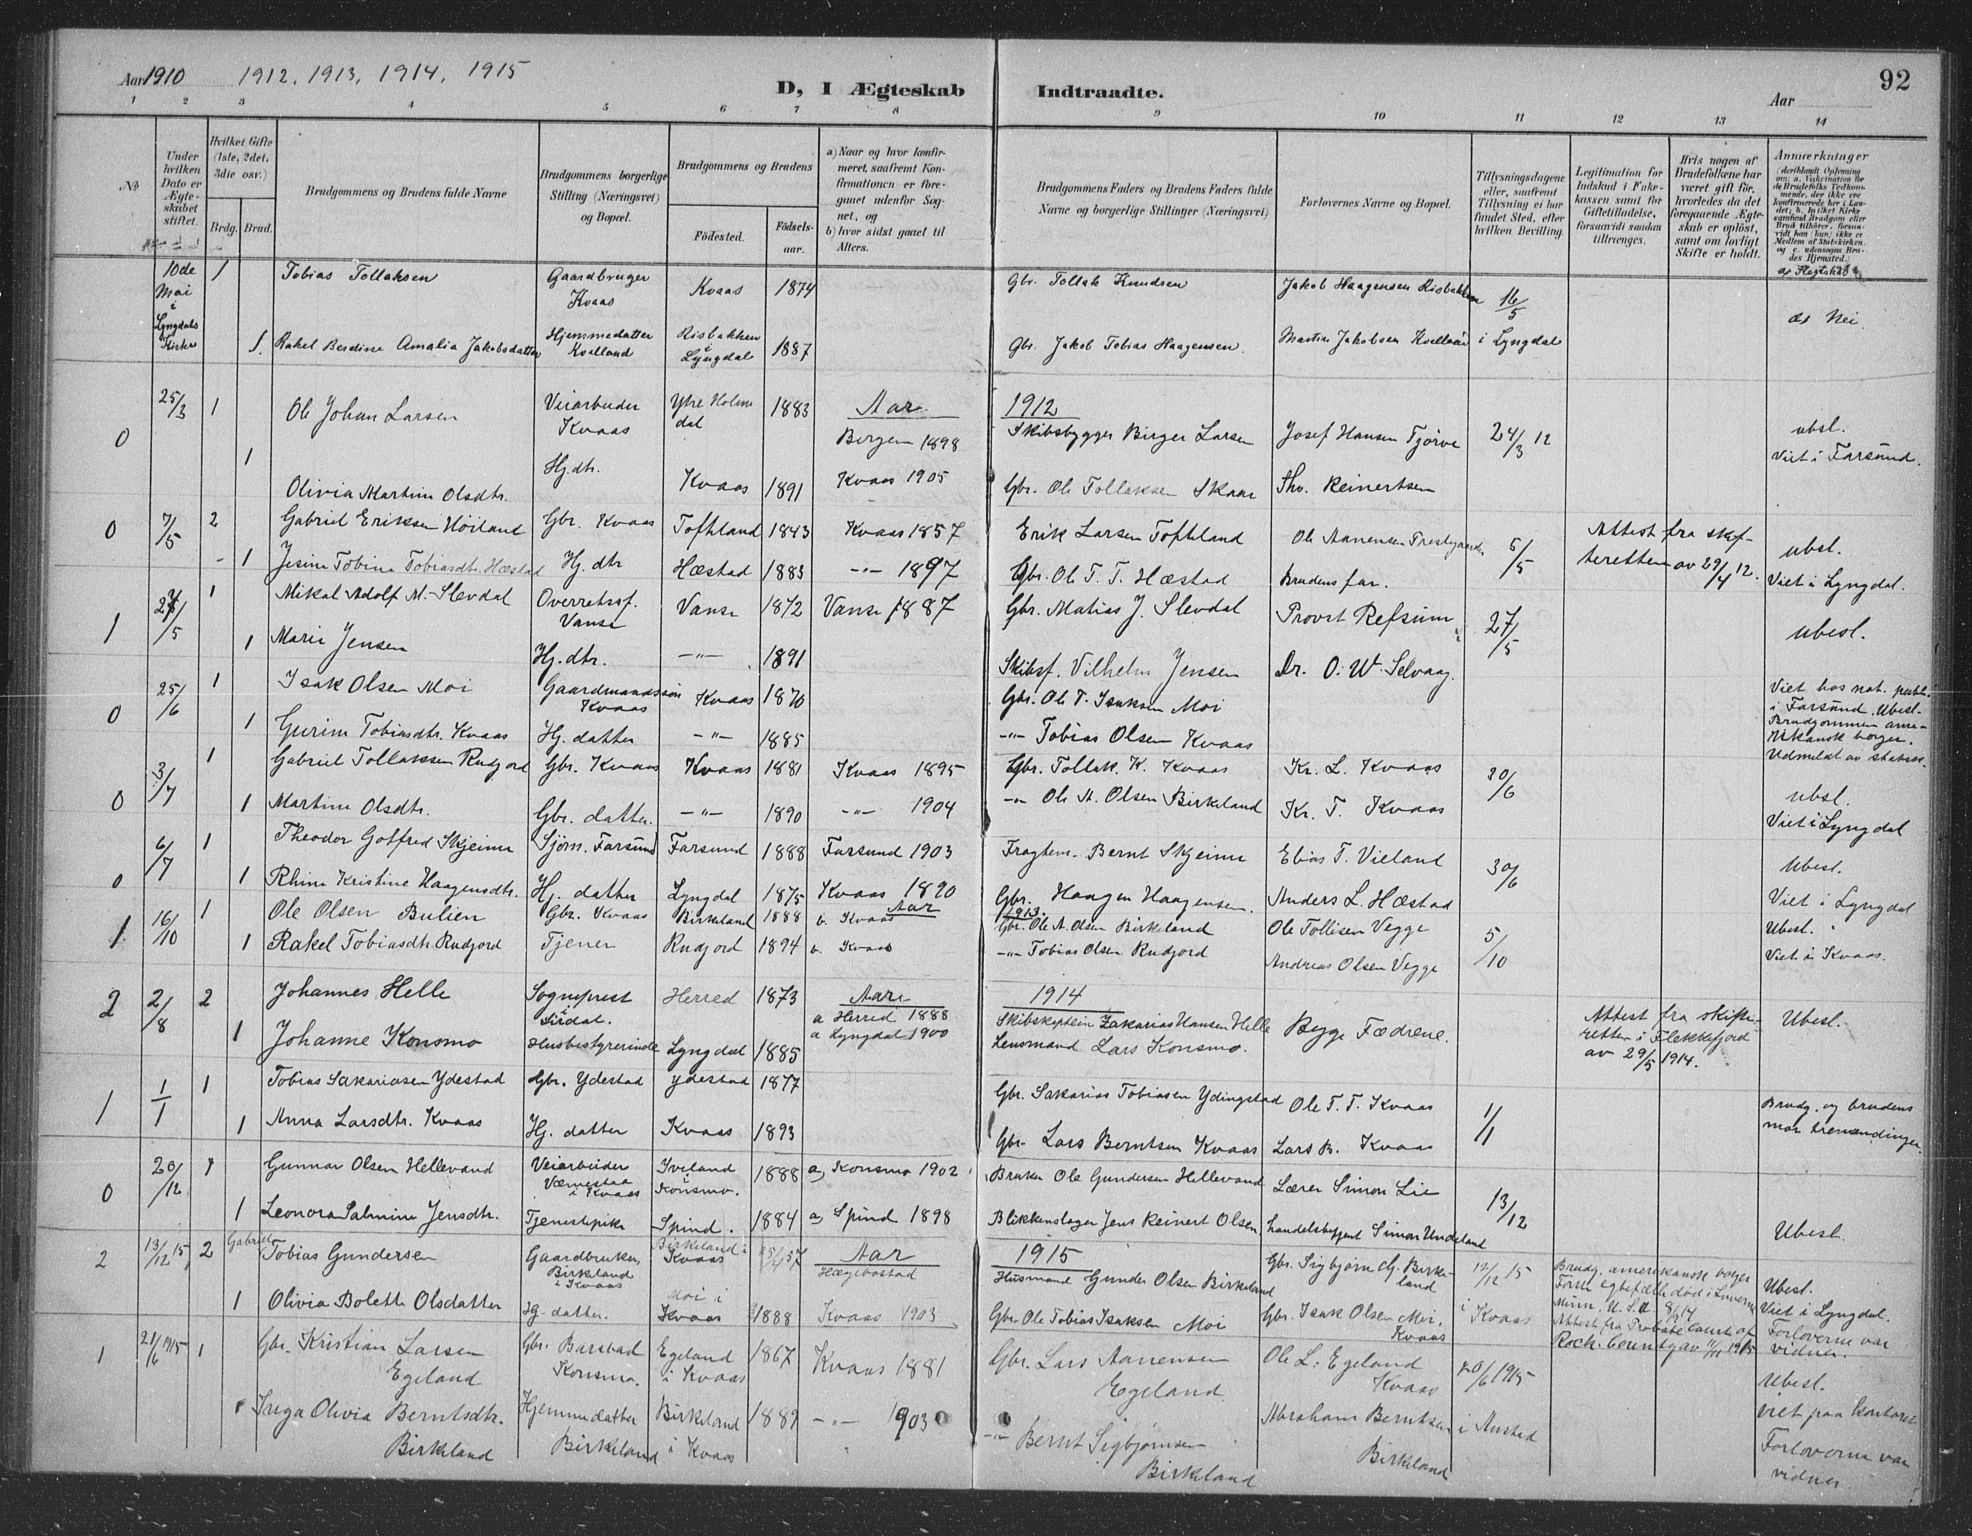 Aar 1910 1912, 1913, 1914, 1915
D, I Ægteskab Indtraadte.
Aar
92
1 2 3 4 5 6 7 8 9 10 11 12 13 14
No
Under hvilken Dato er Ægteskabet stiftet.
Hvilket Gifte (1ste, 2det, 3die osv.)
Brdg. Brud.
Brudgommens og Brudens fulde Navne
Brudgommens borgerlige Stilling (Næringsvei) og Bopæl.
Brudgommens og Brudens
Fødested. Fødselsaar.
a) Naar og hvor konfirmeret, saafremt Konfirmationen er foregaaet udenfor Sognet, og
b) hvor sidst gaaet til Alters.
Brudgommens Faders og Brudens Faders fulde Navne og borgerlige Stillinger (Næringsvei)
Forlovernes Navne og Bopæl.
Tillysningsdagene eller, saafremt Tillysning ei har fundet Sted, efter hvilken Bevilling.
Legitimation for Indskud i Fakekassen samt for Giftetilladelse, forsaavidt saadan tiltrænges.
Hvis nogen af Brudefolkene har været gift før, hvorledes da det foregaaende Ægteskab er opløst, samt om lovligt Skifte er holdt.
Anmærkninger
10de Mai i Lyngdals Kirke 1 Tobias Tollaksen Gaardbruger Kvaas Kvaas 1874 Gbr. Tollak Knudsen Jakob Haagensen Risbakken 16/5
1. Rakel Berdine Amalia Jakobsdatter Hjemmedatter Kvelland Risbakken i Lyngdal 1887 Gbr. Jakob Tobias Haagensen. Martin Jakobsen i Lyngdal d) Nei.
25/3 1 Ole Johan Larsen Veiarbeider Kvaas Ytre Holmedal 1883 Aar 1912
0 Bergen 1898 Skibsbygger Birger Larsen Josef Hansen Tjørve 24/3 12 ubsl. Viet i Farsund.
1 Olivia Martine Olsdtr. Hj.dtr. Kvaas 1891 Kvaas 1905 Gbr. Ole Tollaksen Skaar Thv. Reinertsen
0 7/5 2 Gabriel Eriksen Høiland Gbr. Kvaas Toftland 1843 Kvaas 1857 Erik Larsen Tofteland Ole Aanensen Prestgaarden 5/5 Attest fra skifteretten av 29/4 12. ubsl.
1 Jesine Tobine Tobiasdtr. Hæstad Hj. dtr Hæstad 1883 -"- 1897 Gbr. Ole T. T. Hæstad Brudens far. Viet i Lyngdal.
1 1 Mikal Adolf M. Slevdal Overretssf. Vanse Vanse 1872 Vanse 1887 Gbr. Matias J. Slevdal Provst Refsum 27/5 ubesl.
1 Marie Jensen Hj.dtr. -"- 1891 Skibsf. Vilhelm Jensen Dr. O. W. Selvaag.
0 25/6 1 Isak Olsen Moi Gaardmandssøn Kvaas Kvaas 1870 Gbr. Ole T. Isaksen Moi Viet hos not. publ. i Farsund. Ubesl.
1 Gurine Tobiasdtr. Kvaas Hj. datter -"- 1885 -"- Tobias Olsen Kvaas Brudgommen amerikansk borger. Udmeldt av statsk.
0 3/7 1 Gabriel Tollaksen Rudjord Gbr. Kvaas Kvaas 1881 Kvaas 1895 Gbr. Tollak. K. Kvaas Kr. L. Kvaas 30/6 ubsl.
1 Martine Olsdtr. Gbr. datter. -"- 1890 -"- 1904 -"- Ole A. Olsen Birkeland Kr. T. Kvaas Viet i Lyngdal
0 6/7 1 Theodor Gotfred Skjeime Sjøm. Farsund Farsund 1888 Farsund 1903 Fragtem. Bernt Skjeime Elias T. Vieland 30/6 Ubesl.
1 Rhine Kristine Haagensdtr. Hj. datter Lyngdal 1875 Kvaas 1890 Gbr. Haagen Haagensen. Anders L. Hæstad Viet i Lyngdal
Aar 1913.
1 16/10 1 Ole Olsen Bulien Gbr. Kvaas Birkeland 1888 b. Kvaas Gbr. Ole A. Olsen Birkeland Ole Tollisen Vegge 5/10 Ubesl.
1 Rakel Tobiasdtr. Rudjord Tjener Rudjord 1894 b. Kvaas -"- Tobias Olsen Rudjord Andreas Olsen Vegge Viet i Kvaas.
Aar 1914
2 2/8 2 Johannes Helle Sogneprest i Sirdal. Herred 1873 a Herred 1888 Skibskaptein Zakarias Hansen Helle Begge Fædrene. Attest fra skifteretten i Flekkefjord av 29/5 1914. Ubesl.
1 Johanne Konsmo Husbestyrerinde Lyngdal 1885 a Lyngdal 1900 Lensmand Lars Konsmo.
1 1/1 1 Tobias Sakariasen Ydestad Gbr. Ydestad Ydestad 1877 Gbr. Sakarias Tobiasen Ydingstad Ole T. T. Kvaas 1/1 Brudg. og brudens mor tremændinger.
1 Anna Larsdtr. Kvaas Hj. datter Kvaas 1893 Gbr. Lars Berntsen Kvaas Lars B. Kvaas
0 20/12 1 Gunnar Olsen Hellevand Veiarbeider Væmestad i Kvaas Iveland i Konsmo. 1888 a) Konsmo 1902 Bruker Ole Gundersen Hellevand Lærer Simon Lie 13/12
1 Leonora Salmine Jensdtr. Tjenestepike Spind. 1884 a) Spind 1898 Blikkenslager Jens Reinert Olsen handelsbetjent Simon Undeland Ubesl.
Aar 1915
2 13/12 15, 2 Gabriel Tobias Gundersen Gaardbruker, Birkeland i Kvaas Birkeland i Kvaas Hægebostad Husmand Gunder Olsen Birkeland Gbr. Sigbjørn G. Birkeland 12/12 15 Brudg. amerikansk borger Første egtefælle død i Luverne Minn. U.S.A. 8/1 14 Attest fra Probate Court of Rock County av 11/11 1915 Ubesl.
1 Olivia Bolette Olsdatter Hj. datter. Moi i Kvaas 1888 Kvaas 1903 Gbr. Ole Tobias Isaksen Moi Gbr. Isak Olsen Moi, Kvaas i Kvaas Viet i Lyngdal. Forloverne var vidner.
1 21/6 1915 1 Gbr. Kristian Larsen Egeland Gbr. Barstad Konsmo. Egeland i Kvaas 1867 Kvaas 1881 Gbr. Lars Aanensen Egeland Ole L. Egeland Kvaas 20/6 1915 Ubesl.
Inga Olivia Berntsdtr. Birkeland Hjemmedatter Birkeland Birkeland i Kvaas 1889 -"- 1903 -"- Bernt Sigbjørnsen Birkeland Abraham Berntsen Birkeland i Austad viet paa kontoret Forloverne var vidner.